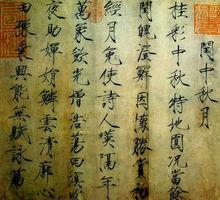 閏中秋月
桂彩中秋特地圓况當餘
閏魄澄鮮因懷勝賞初
經月免使詩人歎隔年
萬象斂光增浩蕩四溟收
夜助嬋娟鱗雲清廓心
田豁乘興能無賦詠篇